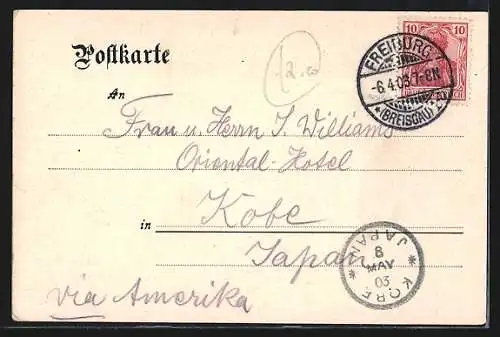 Postkarte
12.00
10 10
FREIBURG
-6.4.03.7-8N
*(BREISGAU)
An
Frau u. Herrn J. Williams
Oriental-Hotel
Kobe
in
Japan
JAPAN
8
MAY
03
* KOBE *
via Amerika